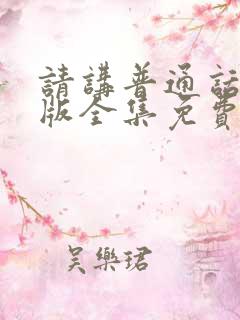 請講普通話
版全集免費
吳樂珺